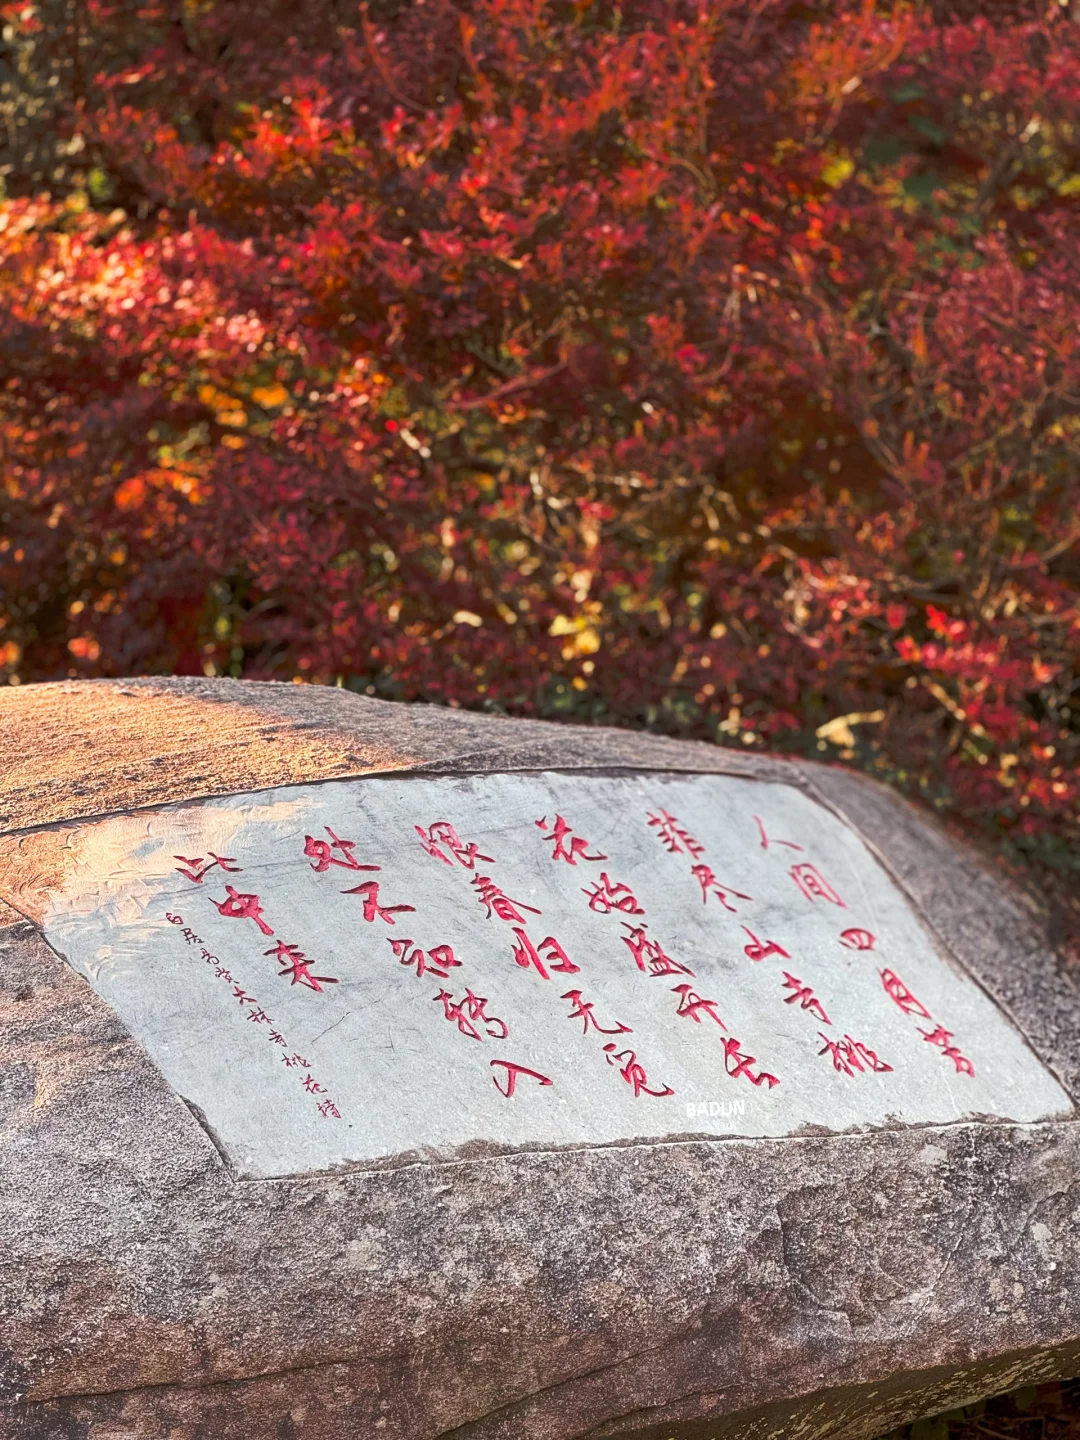 人间四月芳
菲尽山寺桃
花始盛开长
恨春归无觅
处不知转入
此中来
白居易登大林寺桃花诗
BADUN